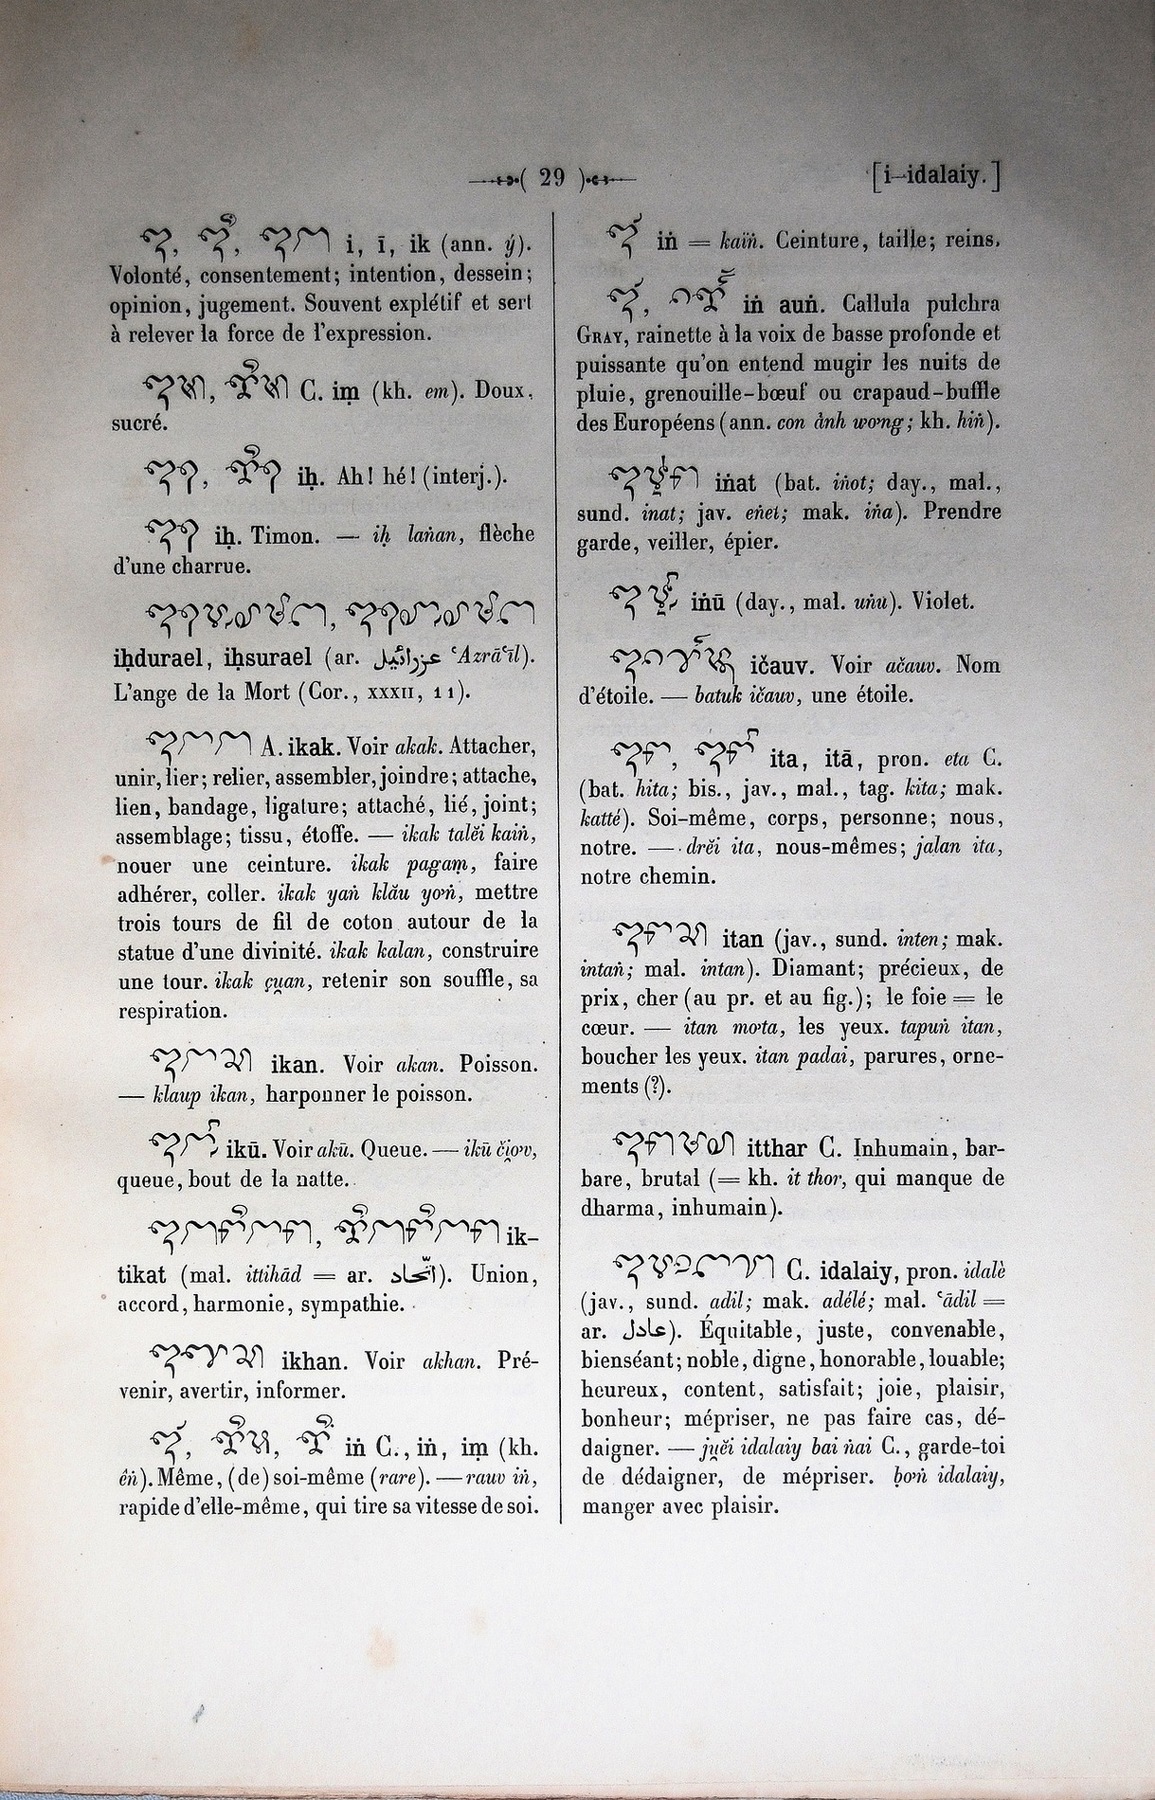 ( 29 )
[i-idalaiy.]
i, ī, ik (ann. ý).
Volonté, consentement; intention, dessein;
opinion, jugement. Souvent explétif et sert
à relever la force de l'expression.
C. iṃ (kh. em). Doux,
sucré.
iḥ. Ah! hé! (interj.).
iḥ. Timon. — iḥ laṅan, flèche
d'une charrue.
iḥdurael, iḥsurael (ar. عزرائيل ʿAzrāʿīl).
L'ange de la Mort (Cor., XXXII, 11).
A. ikak. Voir akak. Attacher,
unir, lier; relier, assembler, joindre; attache,
lien, bandage, ligature; attaché, lié, joint;
assemblage; tissu, étoffe. — ikak talĕi kaiṅ,
nouer une ceinture. ikak pagaṃ, faire
adhérer, coller. ikak yaṅ klău yơṅ, mettre
trois tours de fil de coton autour de la
statue d'une divinité. ikak kalan, construire
une tour. ikak çṷan, retenir son souffle, sa
respiration.
ikan. Voir akan. Poisson.
— klaup ikan, harponner le poisson.
ikū. Voir akū. Queue. — ikū či̯ơv,
queue, bout de la natte.
ik-
tikat (mal. ittihād = ar. اتّحاد). Union,
accord, harmonie, sympathie.
ikhan. Voir akhan. Pré-
venir, avertir, informer.
iṅ C., iṅ, iṃ (kh.
êṅ). Même, (de) soi-même (rare). — rauv iṅ,
rapide d'elle-même, qui tire sa vitesse de soi.
iṅ = kaiṅ. Ceinture, taille; reins.
iṅ auṅ. Callula pulchra
GRAY, rainette à la voix de basse profonde et
puissante qu'on entend mugir les nuits de
pluie, grenouille-bœuf ou crapaud-buffle
des Européens (ann. con ành ương; kh. hiṅ).
iṅat (bat. iṅot; day., mal.,
sund. inat; jav. eṅet; mak. iṅa). Prendre
garde, veiller, épier.
iṅū (day., mal. uṅu). Violet.
ičauv. Voir ačauv. Nom
d'étoile. — batuk ičauv, une étoile.
ita, itā, pron. eta C.
(bat. hita; bis., jav., mal., tag. kita; mak.
katté). Soi-même, corps, personne; nous,
notre. — drĕi ita, nous-mêmes; jalan ita,
notre chemin.
itan (jav., sund. inten; mak.
intaṅ; mal. intan). Diamant; précieux, de
prix, cher (au pr. et au fig.); le foie = le
cœur. — itan mơta, les yeux. tapuṅ itan,
boucher les yeux. itan padai, parures, orne-
ments (?).
itthar C. Inhumain, bar-
bare, brutal (= kh. it thor, qui manque de
dharma, inhumain).
C. idalaiy, pron. idalè
(jav., sund. adil; mak. adélé; mal. ʿādil =
ar. عادل). Équitable, juste, convenable,
bienséant; noble, digne, honorable, louable;
heureux, content, satisfait; joie, plaisir,
bonheur; mépriser, ne pas faire cas, dé-
daigner. — jṷĕi idalaiy bai ṅai C., garde-toi
de dédaigner, de mépriser. ḅơṅ idalaiy,
manger avec plaisir.